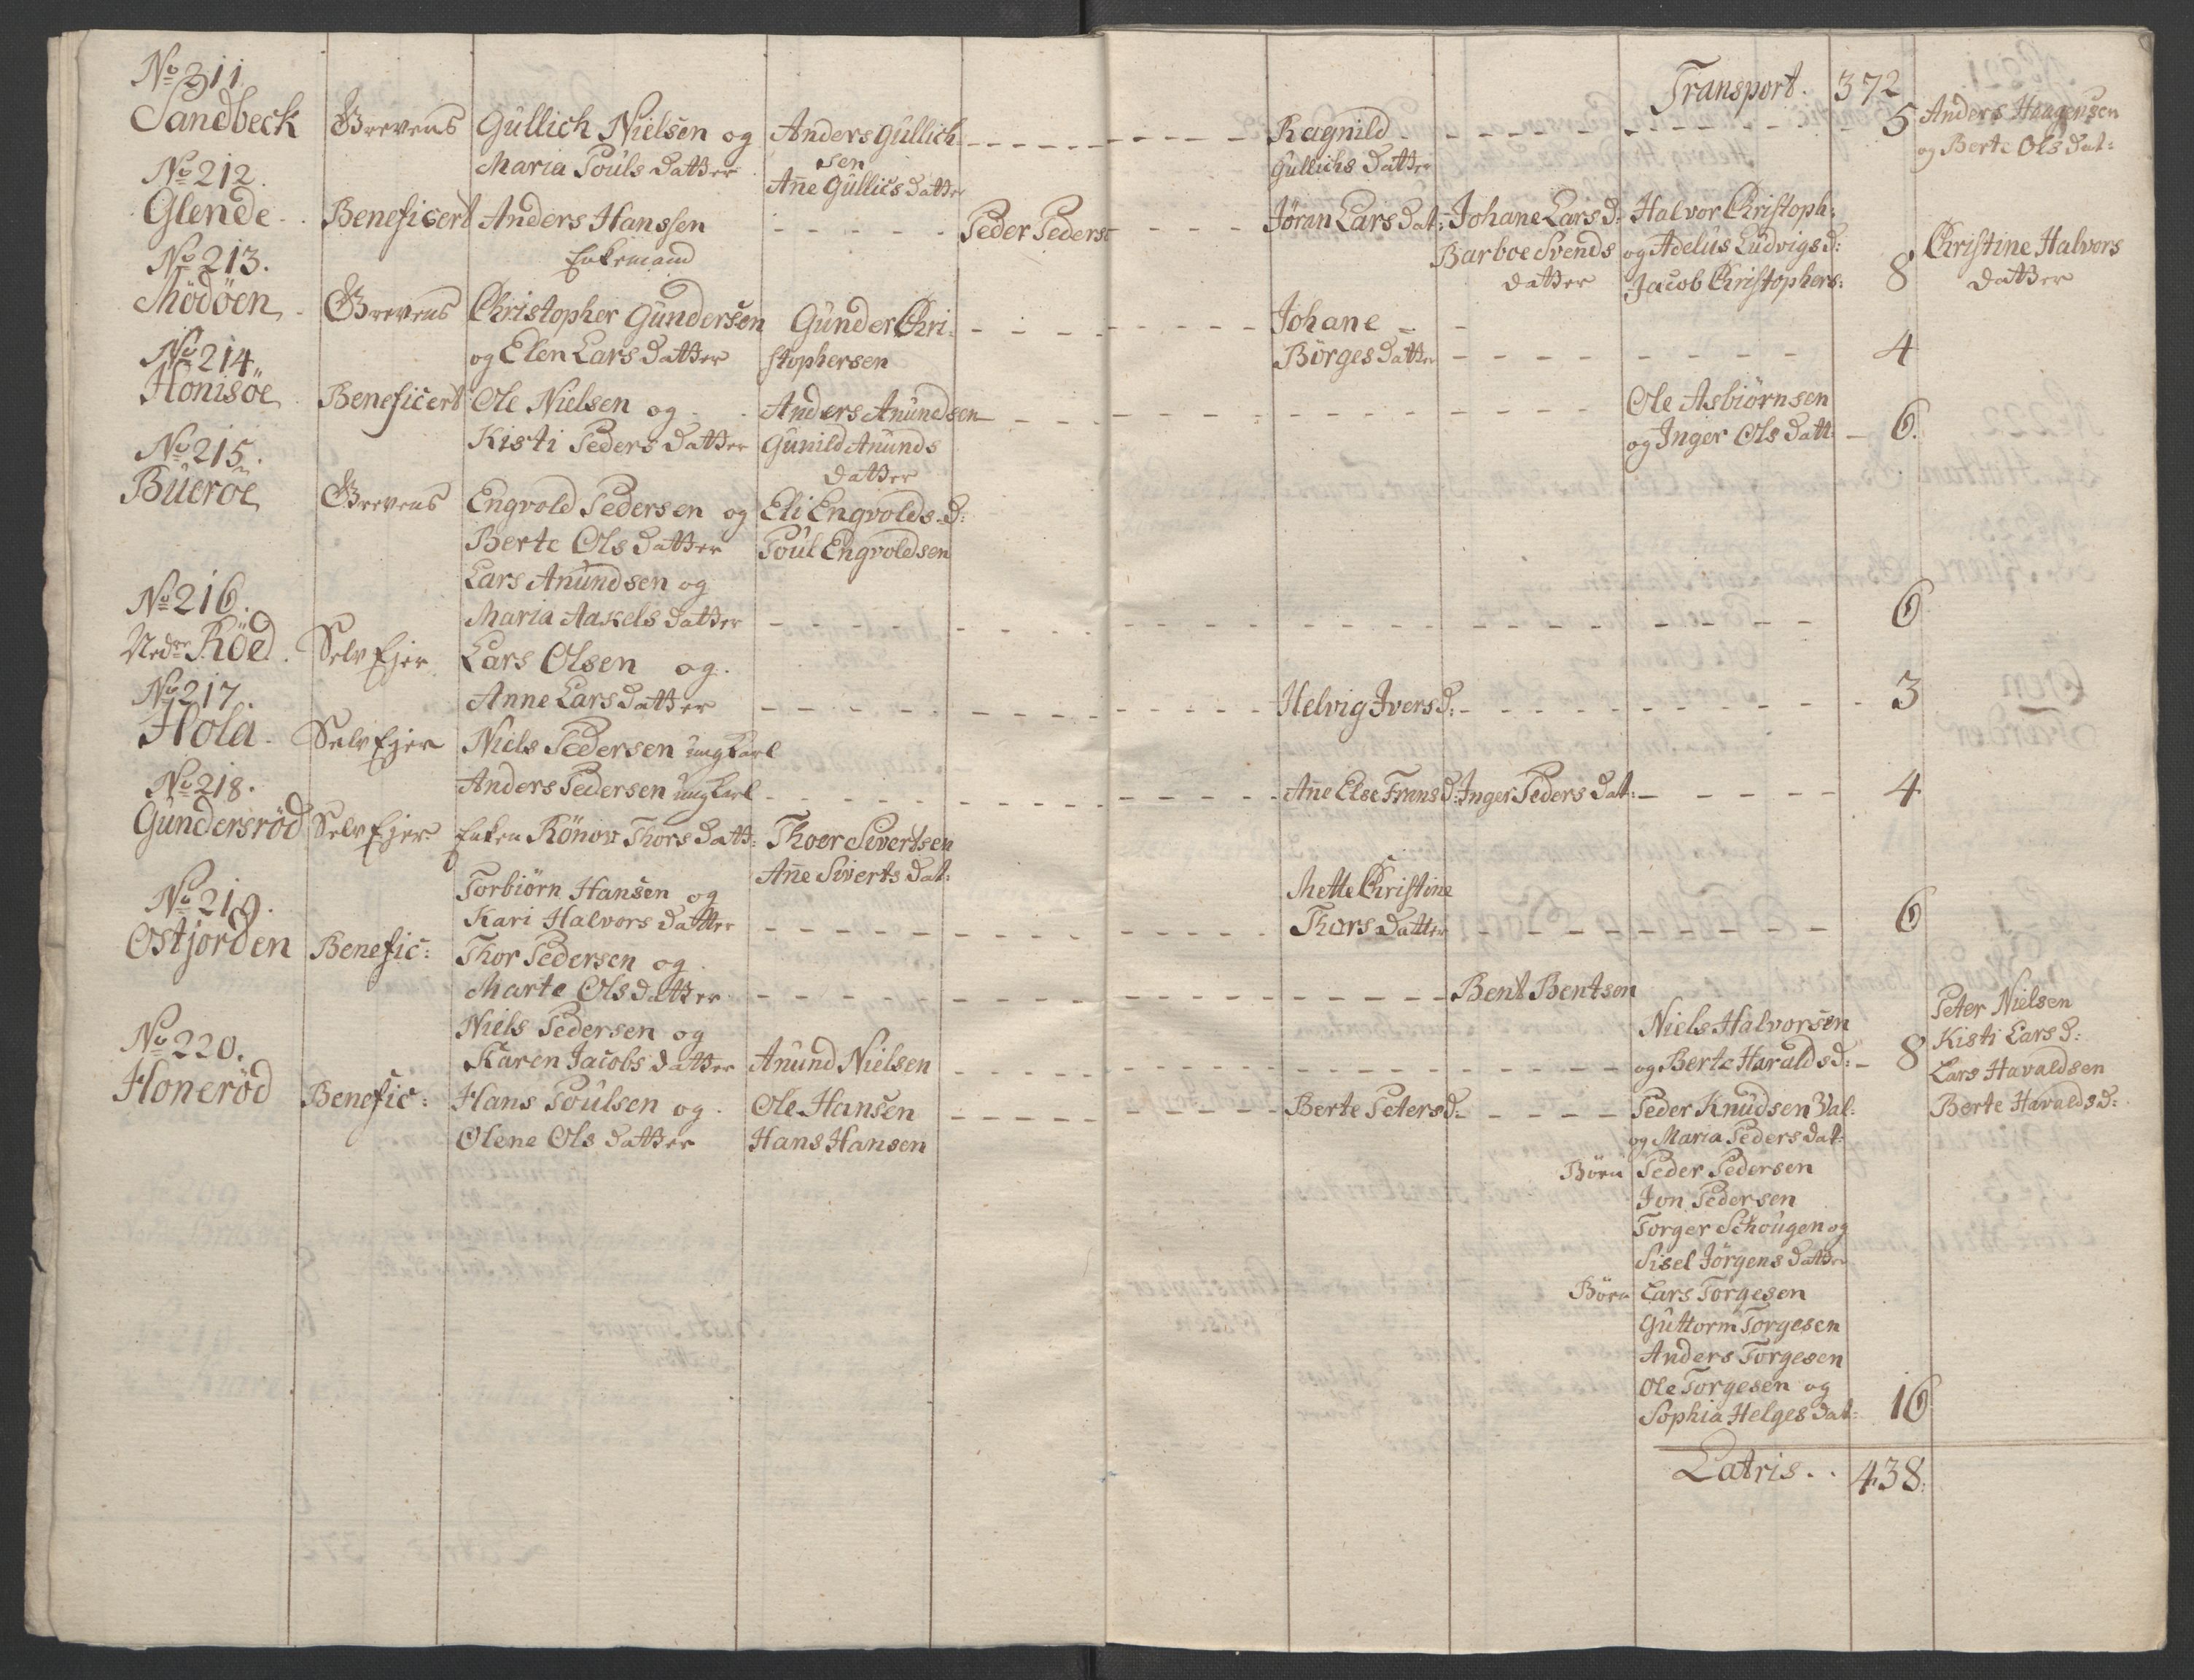 Transport. 372
No 211.
Sandbeck Grevens Gullich Nielsen og Anders Gullich- Ragnild 5 Anders Haagensen
Maria Pouls Datter sen Gullichs Datter og Berte Ols Dat:
Anne Gullics Datter
No 212.
Glende Beneficert Anders Hanssen Peder Peders Jøran Lars Dat: Johane Lars D: Halvor Christoph:
Enkemand Barboe Svends og Adelus Ludvigs D: Christine Halvors
Datter Jacob Christophers: 8 Datter
No 213.
Mödöen Grevens Christopher Gundersen Gunder Chri- Johane
og Elen Lars Datter stophersen Börges Datter 4
No 214.
Hönisöe Beneficert Ole Nielsen og Anders Anundsen Ole Asbiörnsen
Kisti Peders Datter Gunild Anunds og Inger Ols Datt: 6.
Datter
No 215.
Bueröe Grevens Engvold Pedersen og Eli Engvolds D:
Berte Ols Datter Poul Engvoldsen
Lars Anundsen og
Maria Aaxels Datter 6
No 216.
Nedre Röed Selv Ejer Lars Olsen og
Anne Lars Datter Helvig Ivers D: 3
No 217.
Hola Selv Ejer Niels Pedersen ungkarl
Anders Pedersen ungkarl Anne Else Frans D: Inger Peders Dat: 4
No 218.
Gundersröd Selv Ejer Enken Rönov Thors Datt: Thoer Sivertsen
Anne Siverts Dat:
Torbiörn Hansen og Mette Christine
Kari Halvors Datter Thors Datter 6
No 219.
Ostjorden Benefic: Thor Pedersen og
Marte Ols Datter Bent Bentsen
Niels Pedersen og Niels Halvorsen Peter Nielsen
Karen Jacobs Datter Anund Nielsen og Berte Haralds D: 8 Kisti Lars D:
Lars Havaldsen
Berte Havalds D:
No 220.
Honeröd Benefic: Hans Poulsen og Ole Hansen Berte Peters D: Peder Knudsen Val:
Olene Ols Datter Hans Hansen og Maria Peders Dat:
Börn Peder Pedersen
Jon Pedersen
Torger Schougen og
Sisel Jörgens Datter
Börn Lars Torgesen
Guttorm Torgesen
Anders Torgesen
Ole Torgesen og
Sophia Helges Dat: 16
Latris 438.